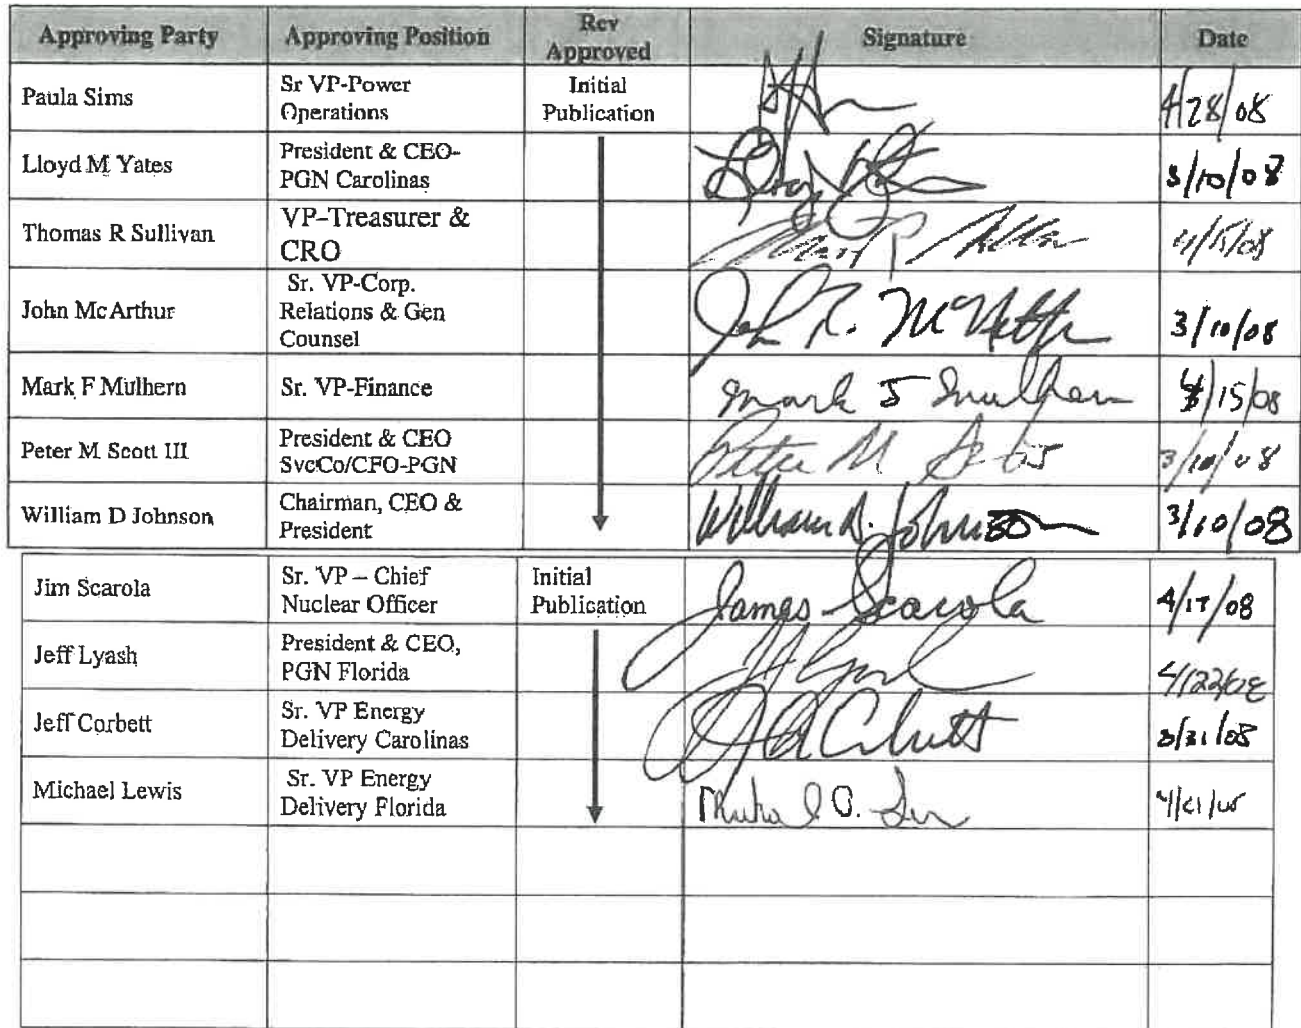 Approving Party Approving Position Rev Approved Signature Date
Paula Sims Sr VP-Power Operations Initial Publication 4/28/08
Lloyd M Yates President & CEO- PGN Carolinas 3/10/08
Thomas R Sullivan VP-Treasurer & CRO 4/15/08
John McArthur Sr. VP-Corp. Relations & Gen Counsel John R. McArthur 3/10/08
Mark F Mulhern Sr. VP-Finance Mark F Mulhern 4/15/08
Peter M Scott III President & CEO SvcCo/CFO-PGN Peter M Scott 3/10/08
William D Johnson Chairman, CEO & President William D. Johnson 3/10/08
Jim Scarola Sr. VP – Chief Nuclear Officer Initial Publication James Scarola 4/17/08
Jeff Lyash President & CEO, PGN Florida 4/22/08
Jeff Corbett Sr. VP Energy Delivery Carolinas 3/31/08
Michael Lewis Sr. VP Energy Delivery Florida